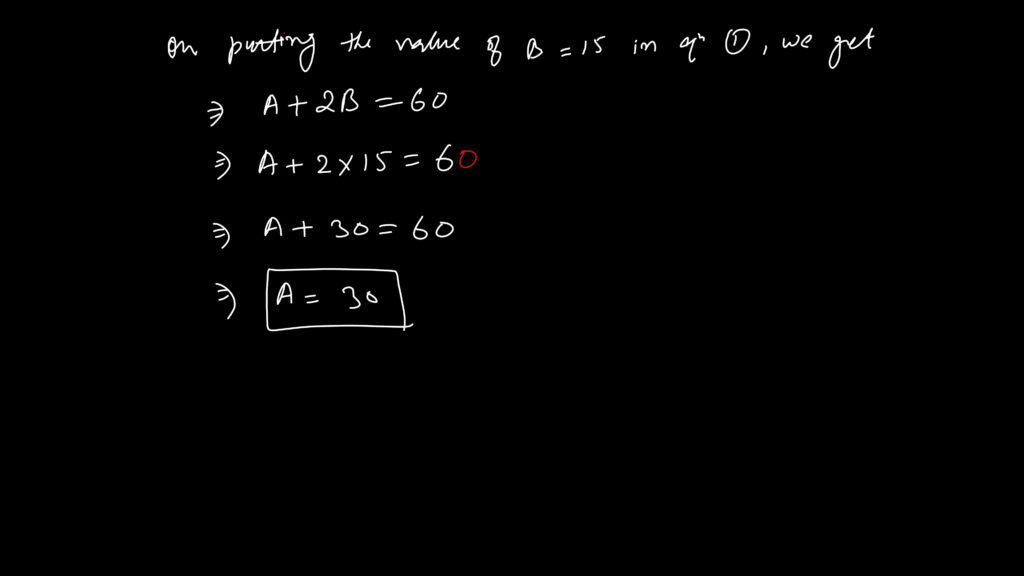 On putting the value of B = 15 in eqⁿ ①, we get
⇒ A + 2B = 60
⇒ A + 2 × 15 = 60
⇒ A + 30 = 60
⇒ A = 30